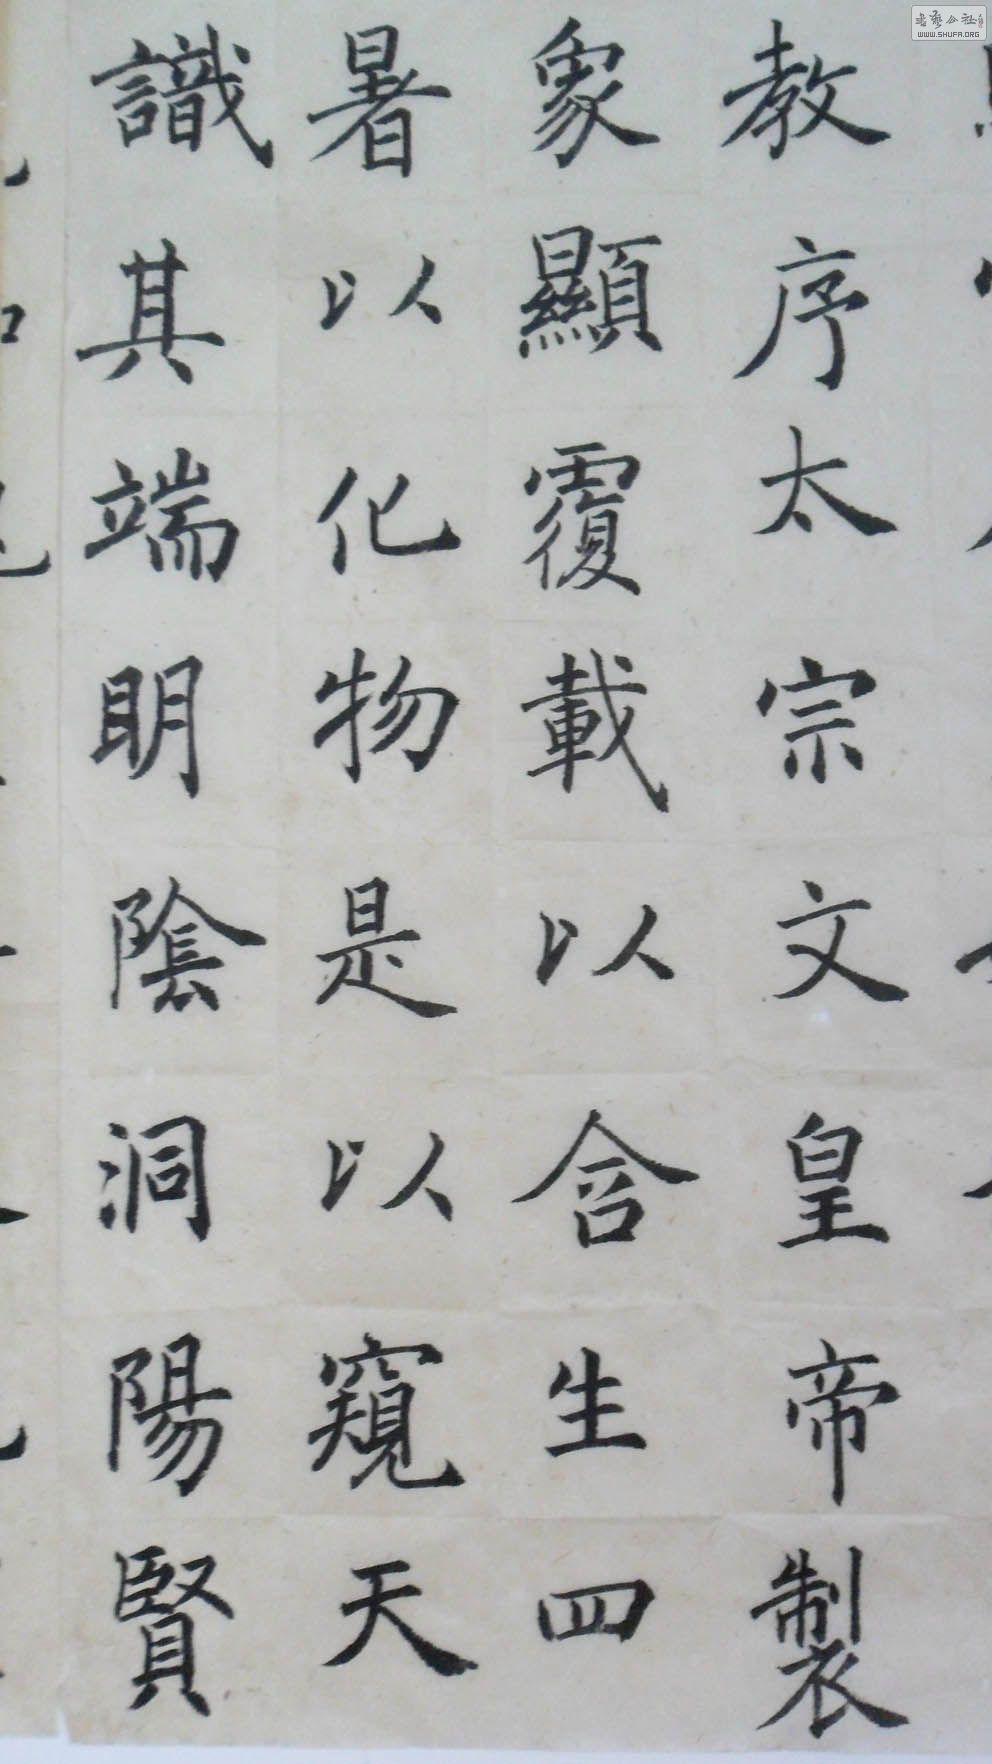 教序太宗文皇帝製
象顯覆載以含生四
暑以化物是以窺天
識其端明陰洞陽賢
WWW.SHUFA.ORG